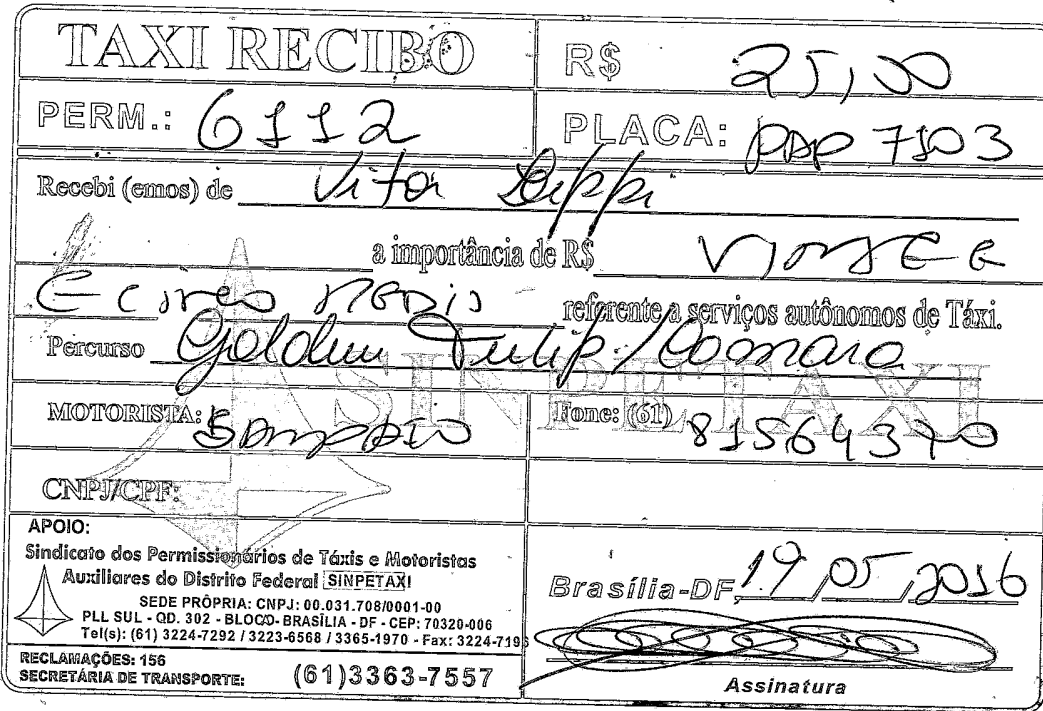 TAXI RECIBO
R$ 25,00
PERM.: 6112
PLACA: PAP 7103
Recebi (emos) de Vitor Lippi
a importância de R$ VINTE E
E CINCO REAIS referente a serviços autônomos de Táxi.
Percurso Golden Tulip / Camara
SINPETAXI
MOTORISTA: SAMPAIO
Fone: (61) 81564370
CNPJ/CPF:
APOIO:
Sindicato dos Permissionários de Táxis e Motoristas
Auxiliares do Distrito Federal SINPETAXI
SEDE PRÓPRIA: CNPJ: 00.031.708/0001-00
PLL SUL - QD. 302 - BLOCO- BRASÍLIA - DF - CEP: 70320-006
Tel(s): (61) 3224-7292 / 3223-6568 / 3365-1970 - Fax: 3224-719
Brasília-DF, 19 / 05 / 2016
Assinatura
RECLAMAÇÕES: 156
SECRETÁRIA DE TRANSPORTE: (61)3363-7557